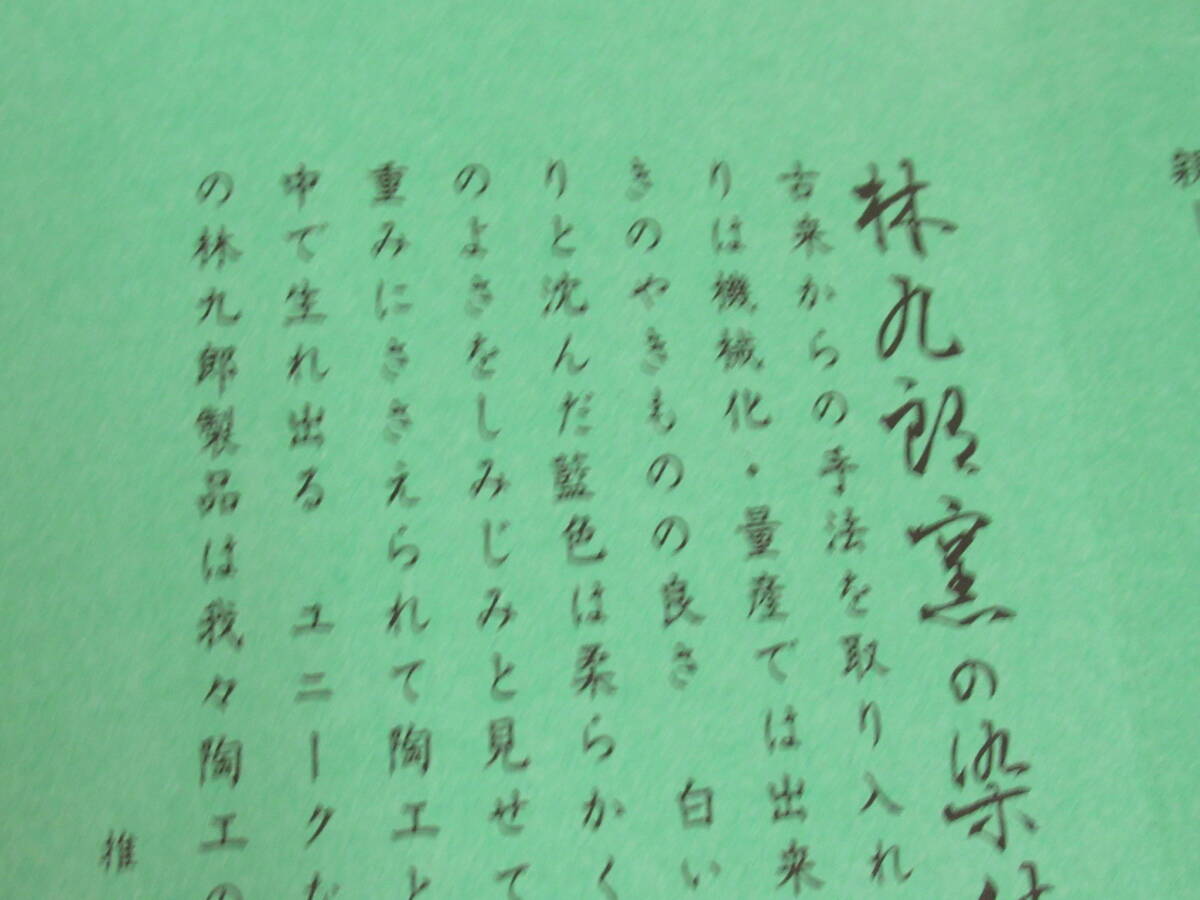 林九郎窯の染付
古来からの手法を取り入れ
りは機械化・量産では出来
きのやきものの良さ　白い
りと沈んだ藍色は柔らかく
のよさをしみじみと見せて
重みにささえられて陶工と
中で生れ出る　ユニークな
の林九郎製品は我々陶工の
推